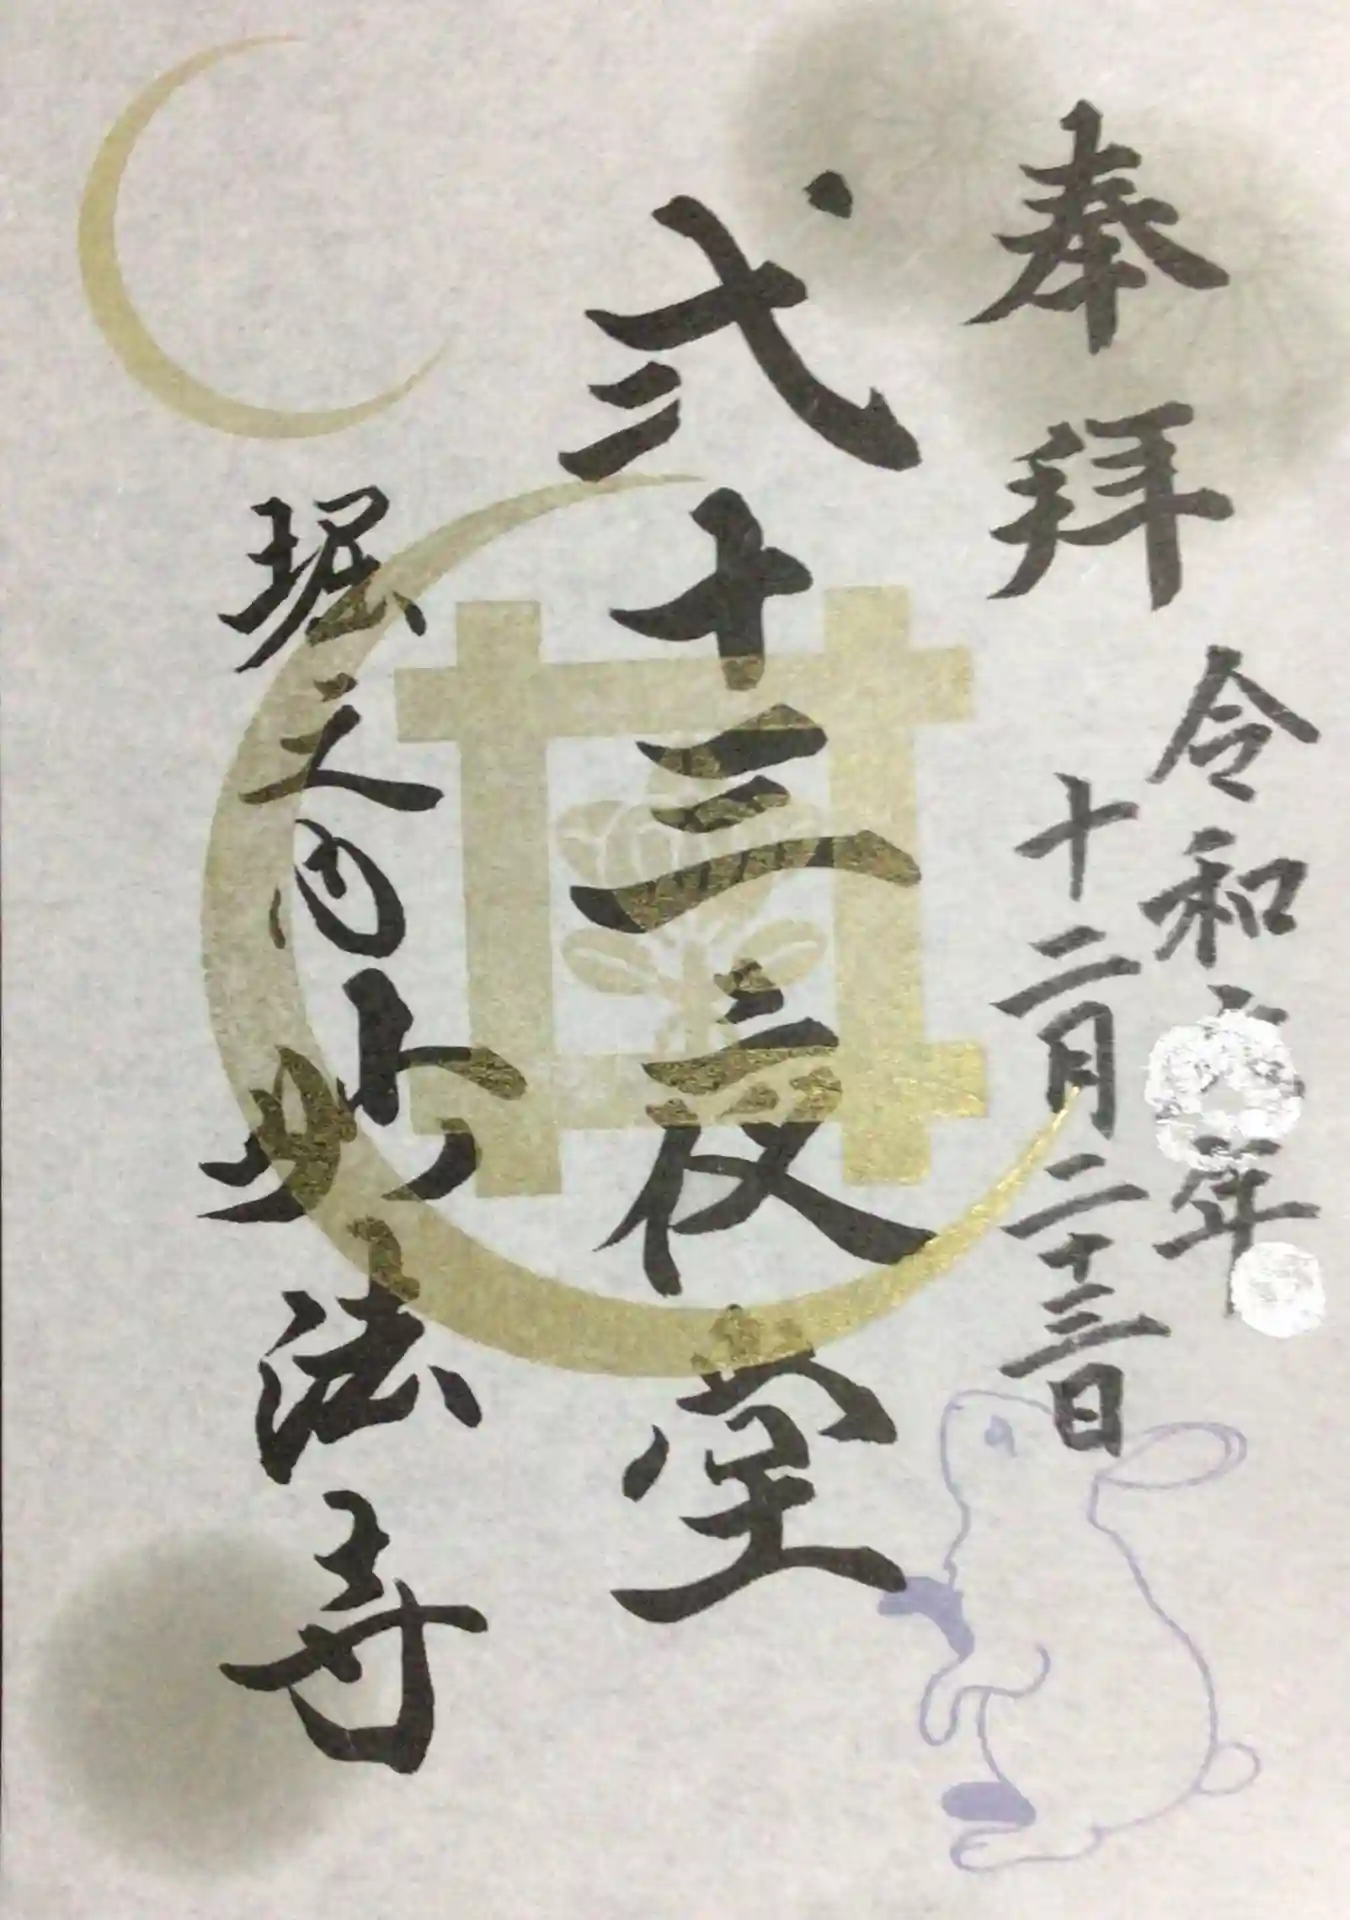 奉拝
令和 年
十二月二十三日
弍十三夜堂
堀之内妙法寺